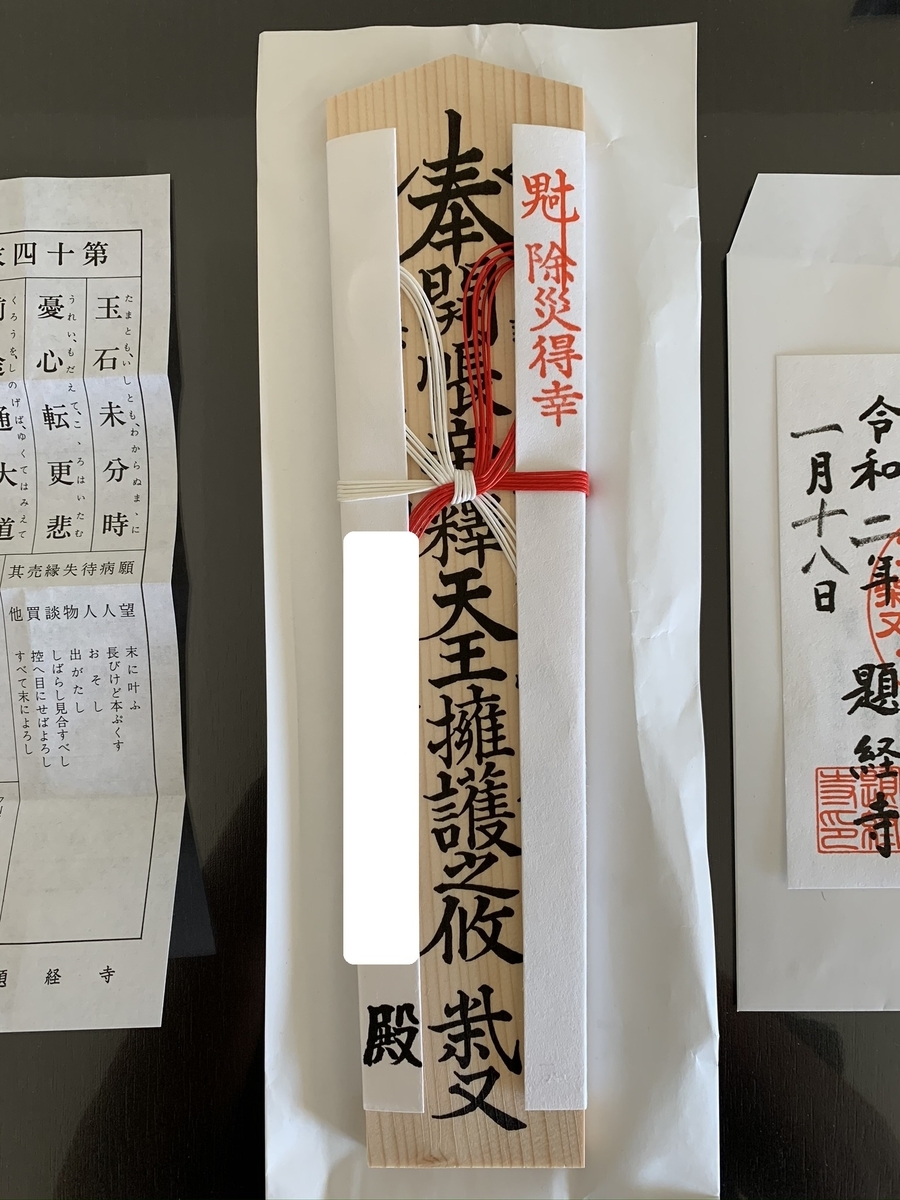 第十四
玉石未分時
たまともいしとも、わからぬまゝに
憂心転更悲
うれいもだえて、こゝろはいたむ
通大道
くろうをしのげば、ゆくてはみえて
願望 末に叶ふ
病人 長びけど本ぷくす
待人 おそし
失物 出がたし
縁談 しばらし見合すべし
売買 控へ目にせばよろし
其他 すべて末によろし
経寺
除災得幸
奉開帳帝釋天王擁護之攸
殿
令和二年
一月十八日
題経寺